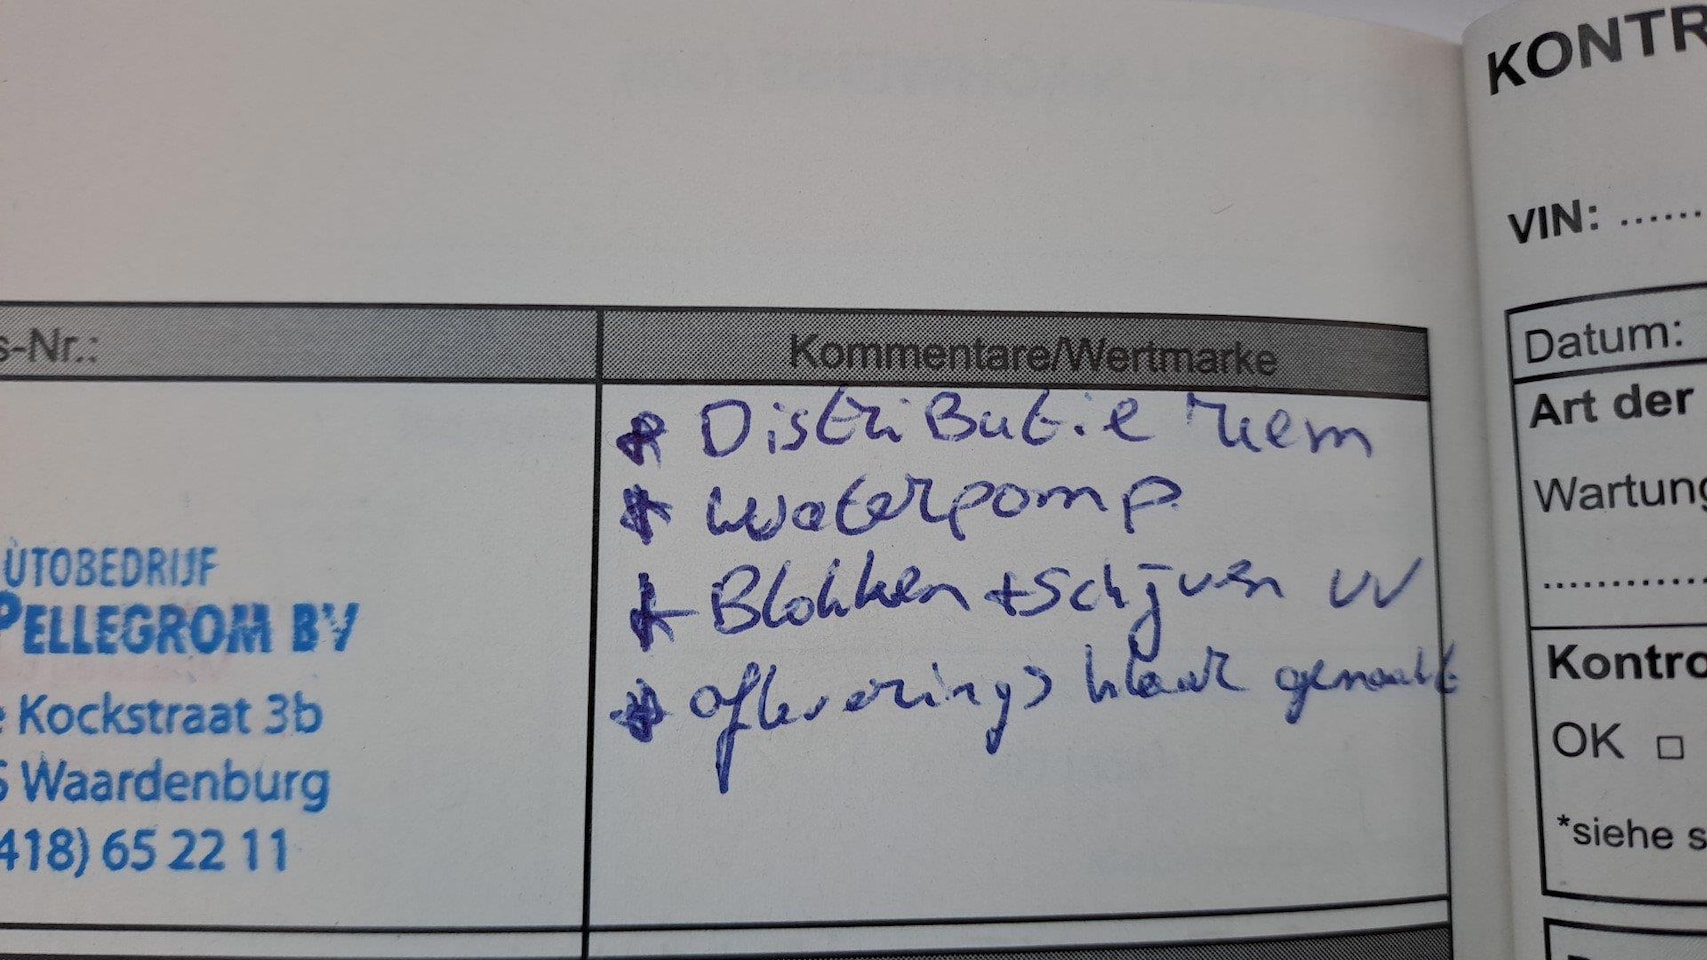 s-Nr.:
Kommentare/Wertmarke
* Distributie riem
* Waterpomp
* Blokken + Schijven VV
* afleverings klaar gemaakt
UTOBEDRIJF
PELLEGROM BV
e Kockstraat 3b
5 Waardenburg
418) 65 22 11
KONTR
VIN: ......
Datum:
Art der
Wartung
............
Kontro
OK □
*siehe s